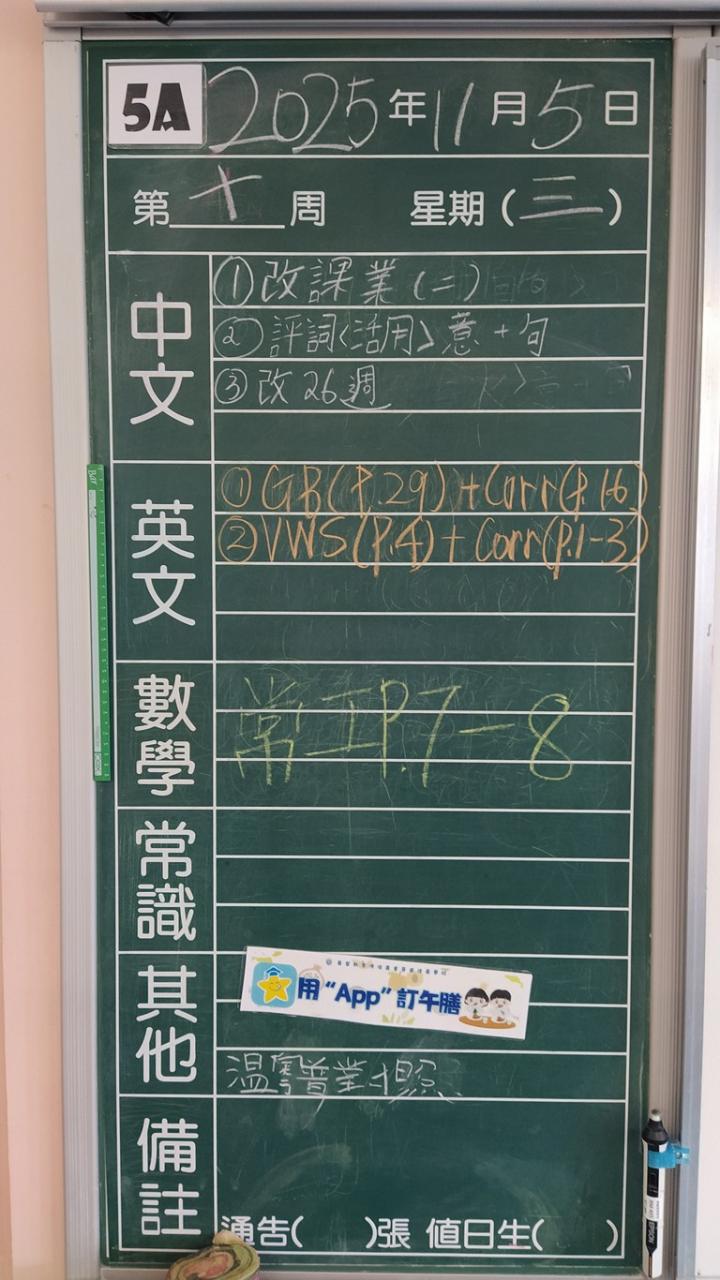 5A 2025年11月5日
第十周 星期(三)
中文
①改課業(二)
②評詞<活用>意+句
③改26週
英文
①GB(P.29)+Corr(P.16)
②VWS(P.4)+Corr(P.1-3)
數學
常工P.7-8
常識
其他
用“App”訂午膳
溫粵普業
備註
通告( )張 值日生( )